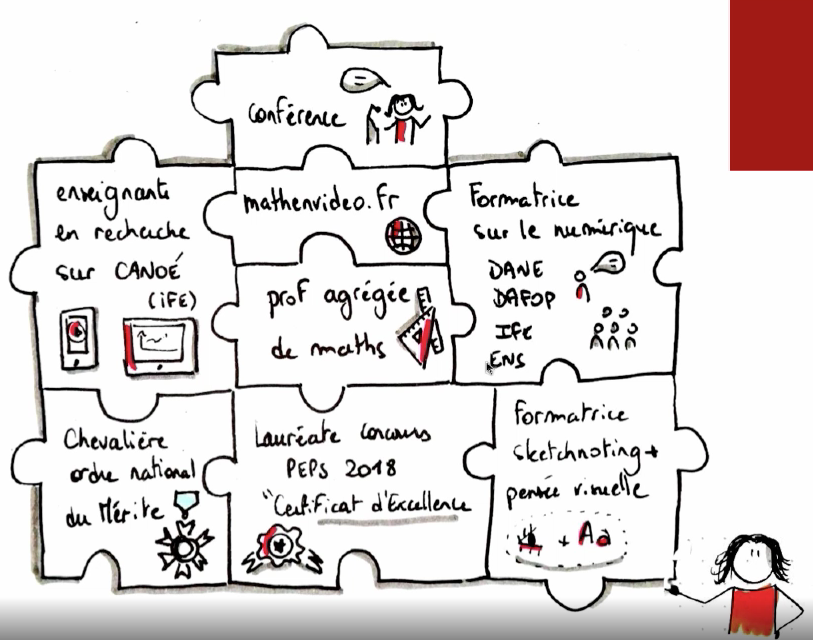 conférence
enseignante
en recherche
sur CANOÉ
(iFÉ)
mathenvideo.fr
prof agrégée
de maths
Formatrice
sur le numérique
DANE
DAFOP
IFE
ENS
Chevalière
ordre national
du Mérite
Lauréate concours
PEPS 2018
"Certificat d'Excellence
Formatrice
sketchnoting+
pensée visuelle
+ Aa